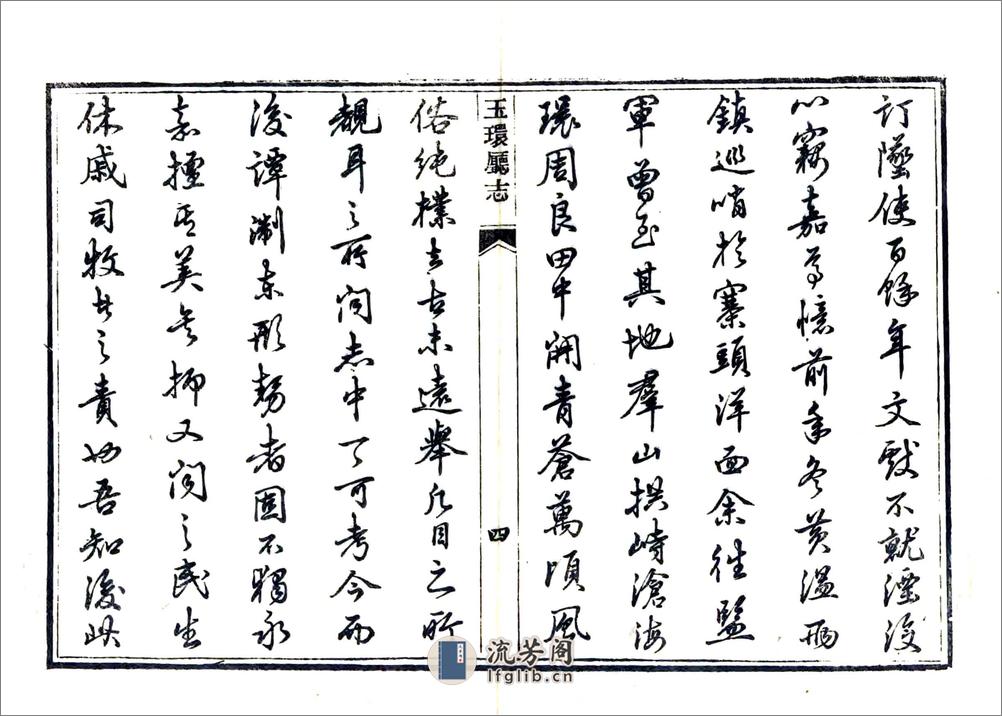 訂墜使百餘年文獻不就湮没
心竊嘉焉憶前年冬黄温兩
鎮巡哨於寨頭洋面余往監
軍曾至其地羣山拱峙滄海
環周良田中開青蒼萬頃風
玉環廳志
四
俗純樸去古未遠舉凡目之所
覩耳之所聞志中一一可考今而
後譚淛東形勢者固不獨永
嘉擅其美矣抑又聞之民生
休戚司牧者之責也吾知後此
流芳阁
lfglib.cn